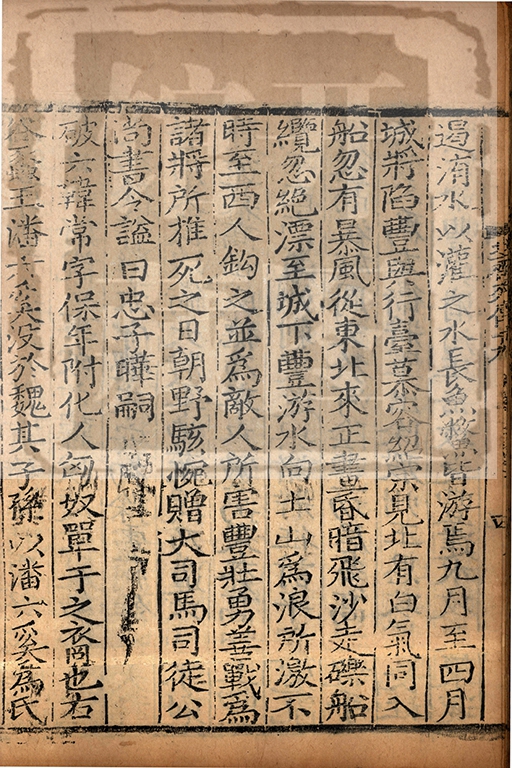 遏洧水以灌之水長魚鱉皆游焉九月至四月
城將陷豐與行臺慕容紹宗見北有白氣同入
船忽有暴風從東北來正晝昏暗飛沙走礫船
纜忽絶漂至城下豐游水向土山爲浪所激不
時至西人鈎之並爲敵人所害豐壯勇善戰爲
諸將所推死之日朝野駭惋贈大司馬司徒公
尚書令謚曰忠子曄嗣
破六韓常字保年附化人匈奴單于之裔也右
谷蠡王潘六奚没於魏其子孫以潘六奚爲氏